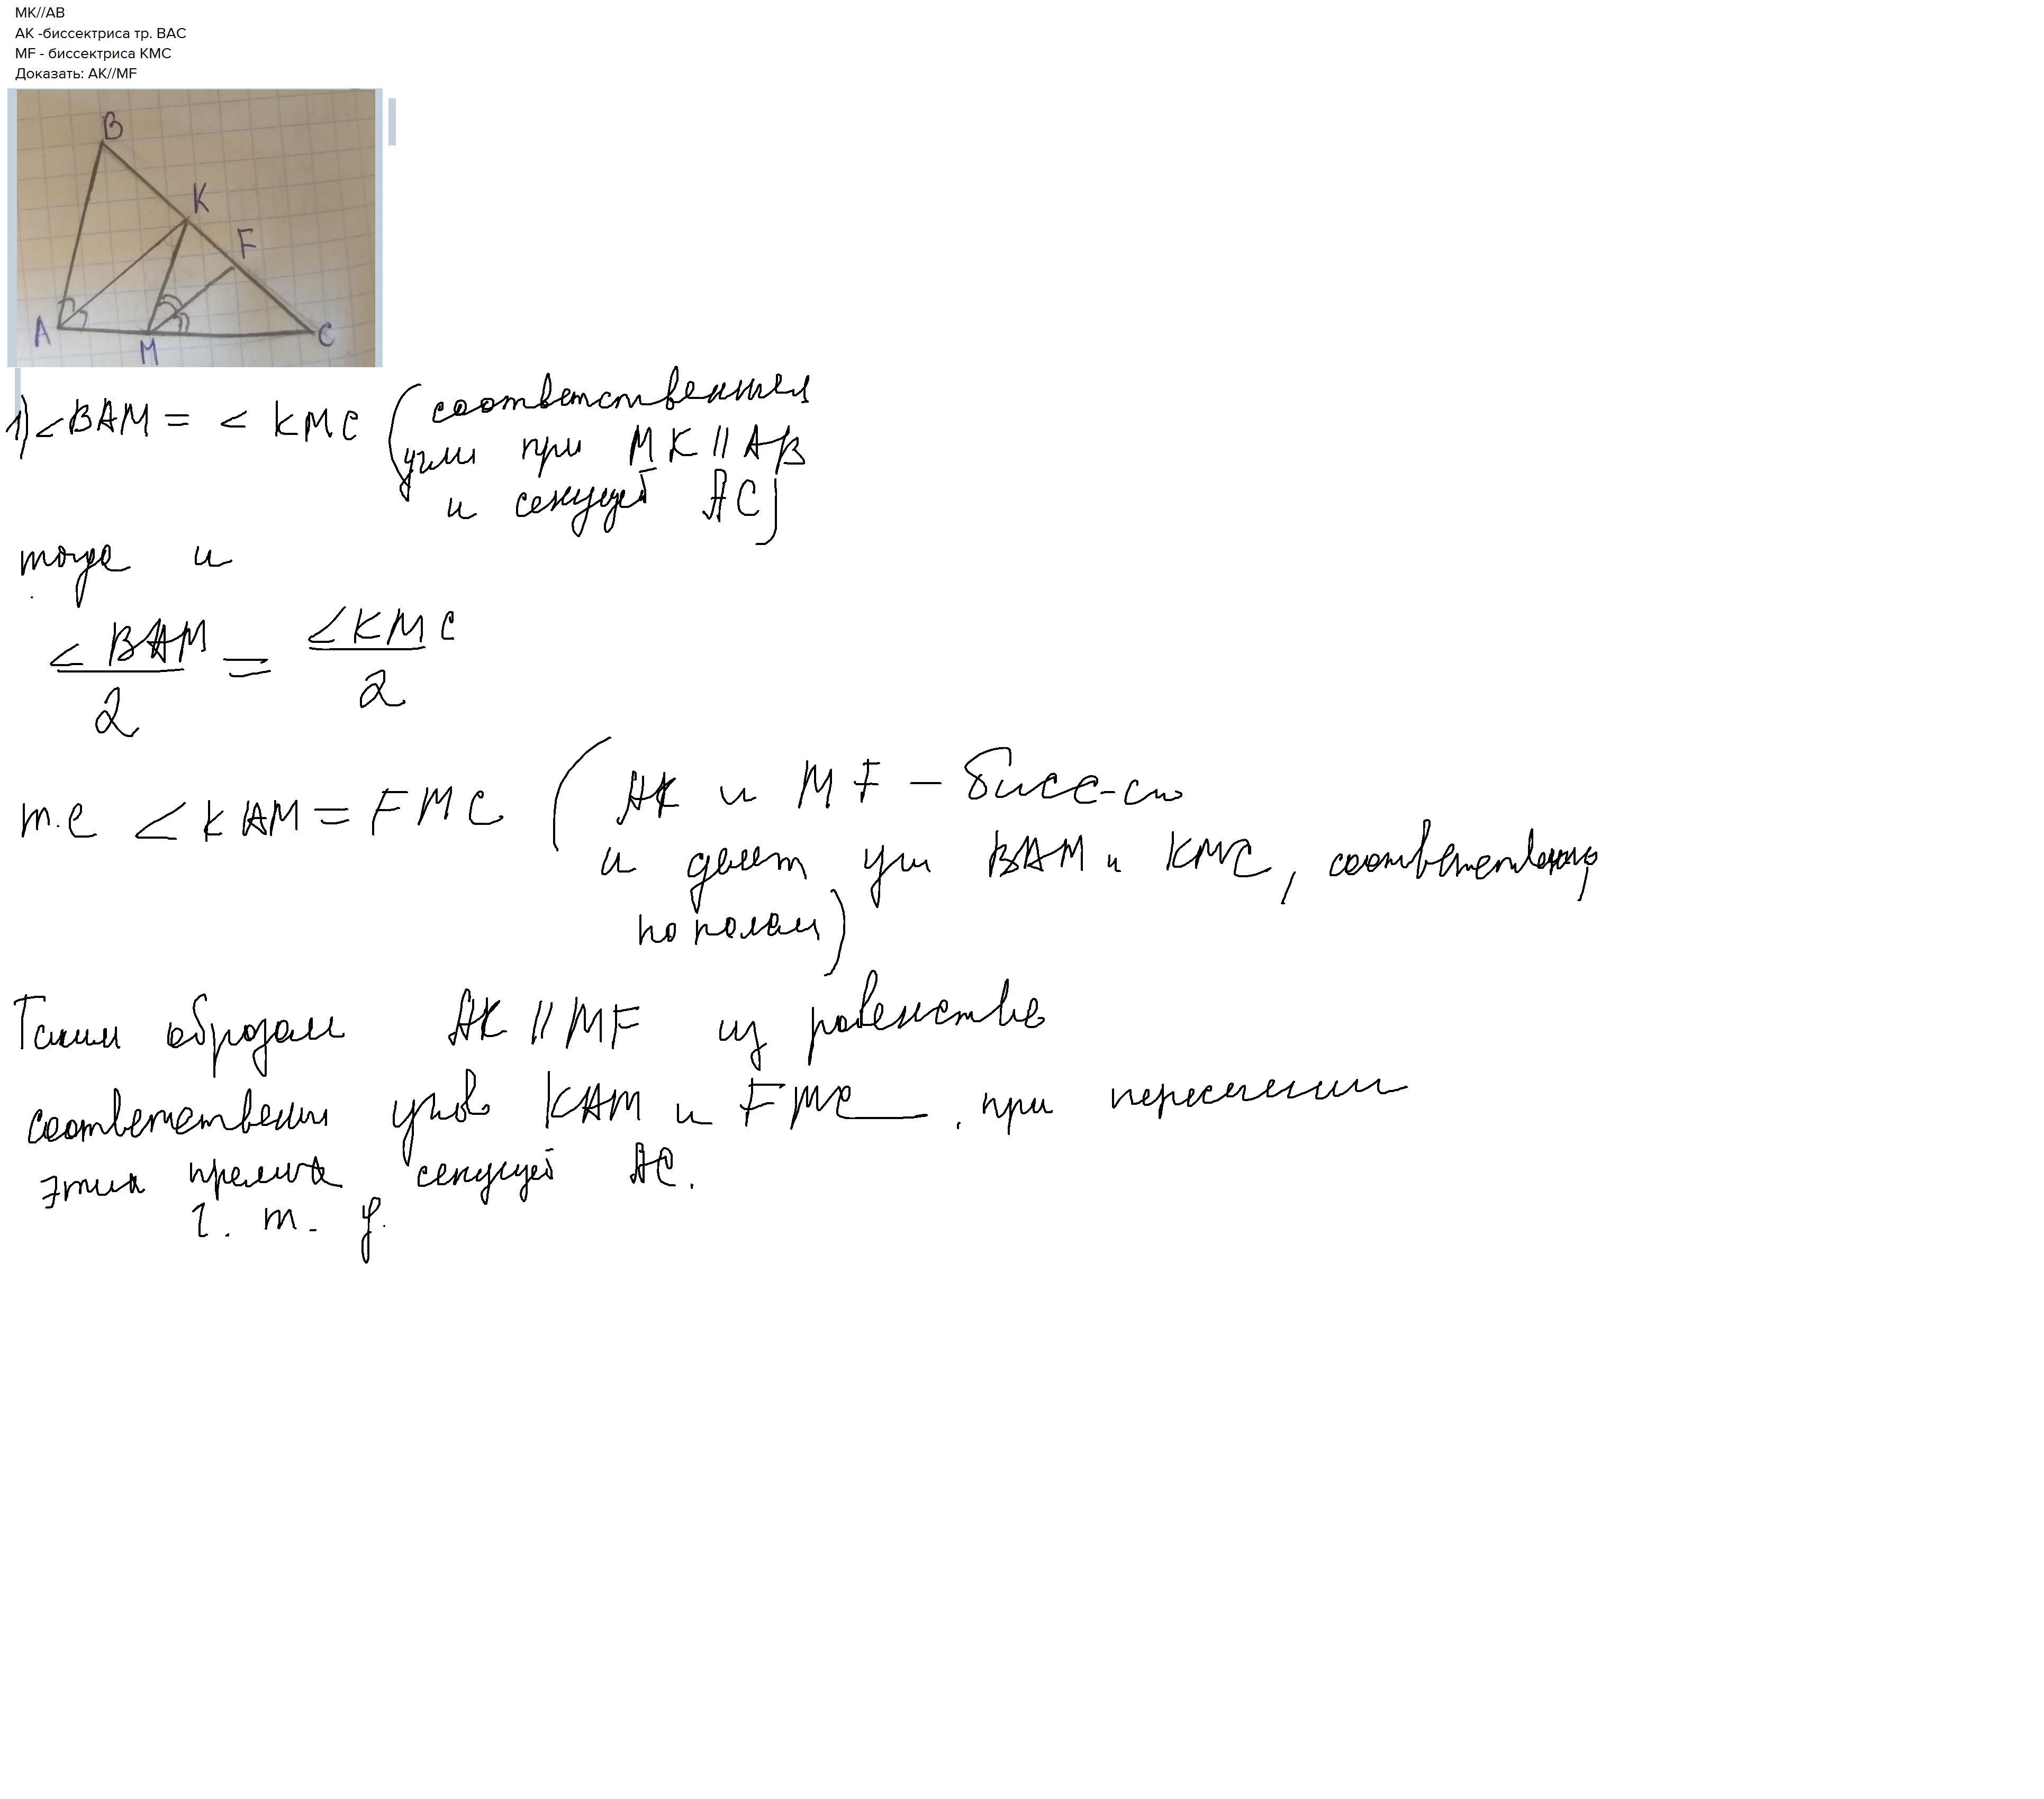 MK//AB
AK -биссектриса тр. BAC
MF - биссектриса KMC
Доказать: AK//MF
B
K
F
A
M
C
1) ∠BAM = ∠KMC (соответственные
углы при MK || AB
и секущей AC)
тогда и
∠BAM/2 = ∠KMC/2
т.е ∠KAM = FMC (AK и MF – бисс-сы
и делят углы BAM и KMC, соответственно,
пополам)
Таким образом AK || MF из равенства
соответственных углов KAM и FMC при пересечении
этих прямых секущей AC.
ч. т. д.